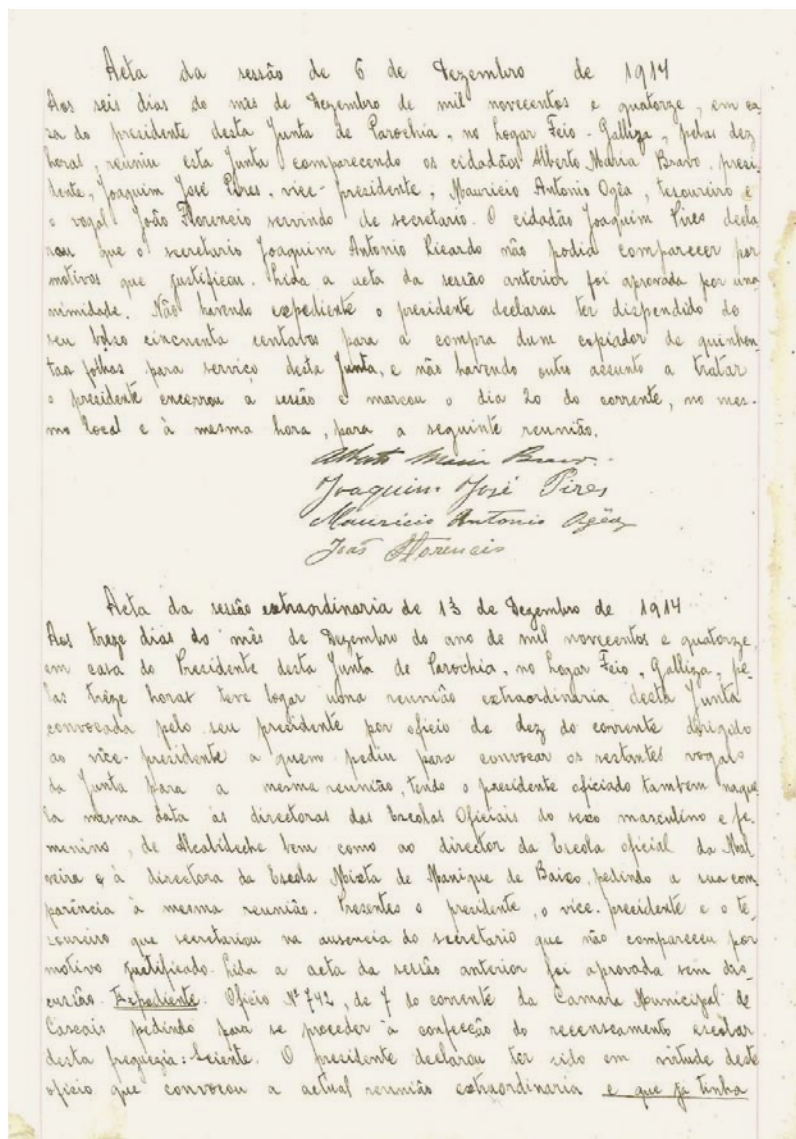 Acta da sessão de 6 de Dezembro de 1914
Aos seis dias do mês de Dezembro de mil novecentos e quatorze, em ca-
za do presidente desta Junta de Parochia, no Logar Feio - Galliza, pelas dez
horas, reuniu esta Junta comparecendo os cidadãos Alberto Maria Bravo, presi-
dente, Joaquim José Pires, vice-presidente, Mauricio Antonio Ogêa, tesoureiro e
o vogal João Florencio servindo de secretario. O cidadão Joaquim Pires decla-
rou que o secretario Joaquim Antonio Ricardo não podia comparecer por
motivos que justificou. Lida a acta da sessão anterior foi aprovada por una-
nimidade. Não havendo expediente o presidente declarou ter dispendido do
seu bolso cincuenta centavos para a compra dum copiador de quinhen-
tas folhas para serviço desta Junta, e não havendo outro assunto a tratar
o presidente encerrou a sessão e marcou o dia 20 do corrente, no mes-
mo local e à mesma hora, para a seguinte reunião.
Alberto Maria Bravo.
Joaquim José Pires
Mauricio Antonio Ogêa
João Florencio
Acta da sessão extraordinaria de 13 de Dezembro de 1914
Aos treze dias do mês de Dezembro do ano de mil novecentos e quatorze,
em casa do Presidente desta Junta de Parochia, no Logar Feio, Galliza, pe-
las treze horas teve logar uma reunião extraordinaria desta Junta
convocada pelo seu presidente por oficio de dez do corrente dirigido
ao vice-presidente a quem pediu para convocar os restantes vogais
da Junta para a mesma reunião, tendo o presidente oficiado tambem naque-
la mesma data às directoras das Escolas Oficiais do sexo masculino e fe-
menino, de Alcabideche bem como ao director da Escola oficial da Mal-
veira e à directora da Escola Mixta de Manique de Baixo, pedindo a sua com-
parência à mesma reunião. Presentes o presidente, o vice-presidente e o te-
zoureiro que secretariou na ausencia do secretario que não compareceu por
motivo justificado. Lida a acta da sessão anterior foi aprovada sem dis-
cussão. Expediente. Oficio Nº 742, de 7 do corrente da Camara Municipal de
Cascais pedindo para se proceder à confecção do recenseamento escolar
desta freguezia: Sciente. O presidente declarou ter sido em virtude deste
oficio que convocou a actual reunião extraordinaria e que já tinha